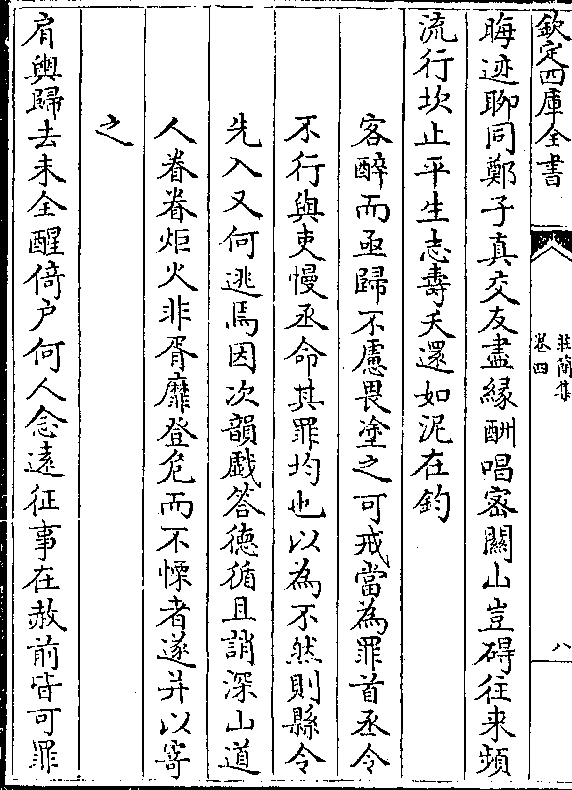 欽定四庫全書
莊簡集
卷四
八
晦迹聊同鄭子真交友盡縁酬唱密闗山豈碍往来頻
流行坎止平生志壽夭還如泥在鈞
客醉而亟歸不慮畏塗之可戒當為罪首丞令
不行與吏慢丞命其罪均也以為不然則縣令
先入又何逃焉因次韻戲答徳循且誚深山道
人眷眷炬火非胥靡登危而不慄者遂并以寄
之
肩輿歸去未全醒倚户何人念逺征事在赦前皆可罪